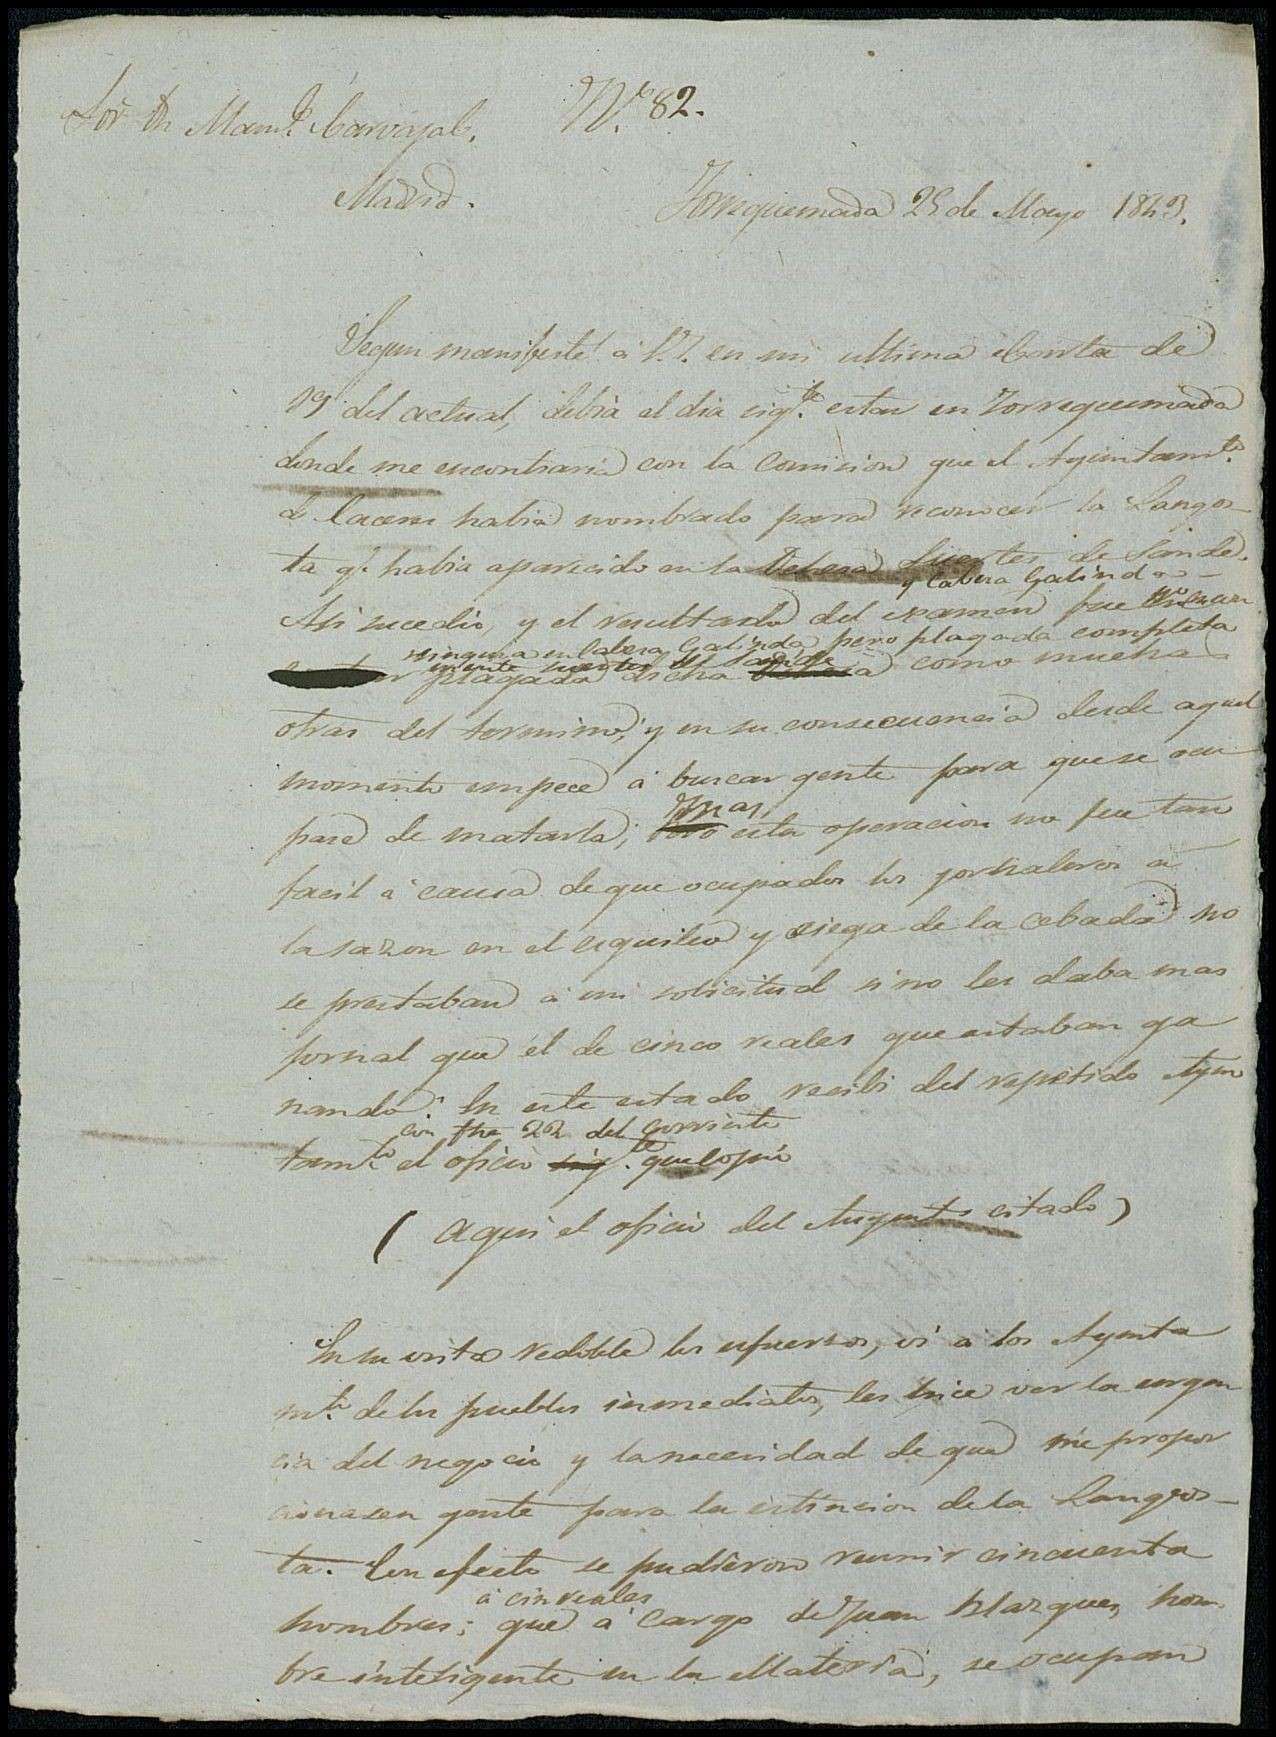 Sor. Dn. Manl. Carvajal.
N.º 82.
Madrid.
Torrequemada 25 de Mayo 1843.
Segun manifesté á V. en mi ultima Carta de
19 del actual, debia el dia sigte. estar en Torrequemada
donde me encontraria con la Comision que el Ayuntamto.
de Caceres habia nombrado para reconocer la Langos-
ta q.e habia aparecido en la Dehesa Suertes de Sande.
y Cabeza Galindo
Asi sucedió, y el resultado del examen fue
ninguna en Cabeza Galindo, pero plagada completa
mente suertes de Sande
plagada dicha como muchas
otras del termino; y en su consecuencia desde aquel
momento empecé á buscar gente para que se ocu
pase de matarla;
Mas,
esta operacion no fue tan
facil á causa de que ocupados los jornaleros á
la sazon en el esquileo y siega de la cebada no
se prestaban á mi solicitud si no les daba mas
jornal que el de cinco reales que estaban ga
nando. En este estado recibi del repetido Ayun
con fha 22 del corriente
tamto. el oficio sigte. que copio
( Aqui el oficio del Ayunto. citado )
En su vista redoblé los esfuerzos, vi á los Ayunta
mtos. de los pueblos inmediatos, les hice ver la urgen
cia del negocio y la necesidad de que me propor
cionasen gente para la estincion de la Langos-
ta. En efecto se pudieron reunir cincuenta
á cin reales
hombres; que á cargo de Juan Blazquez, hom
bre inteligente en la Materia, se ocupan